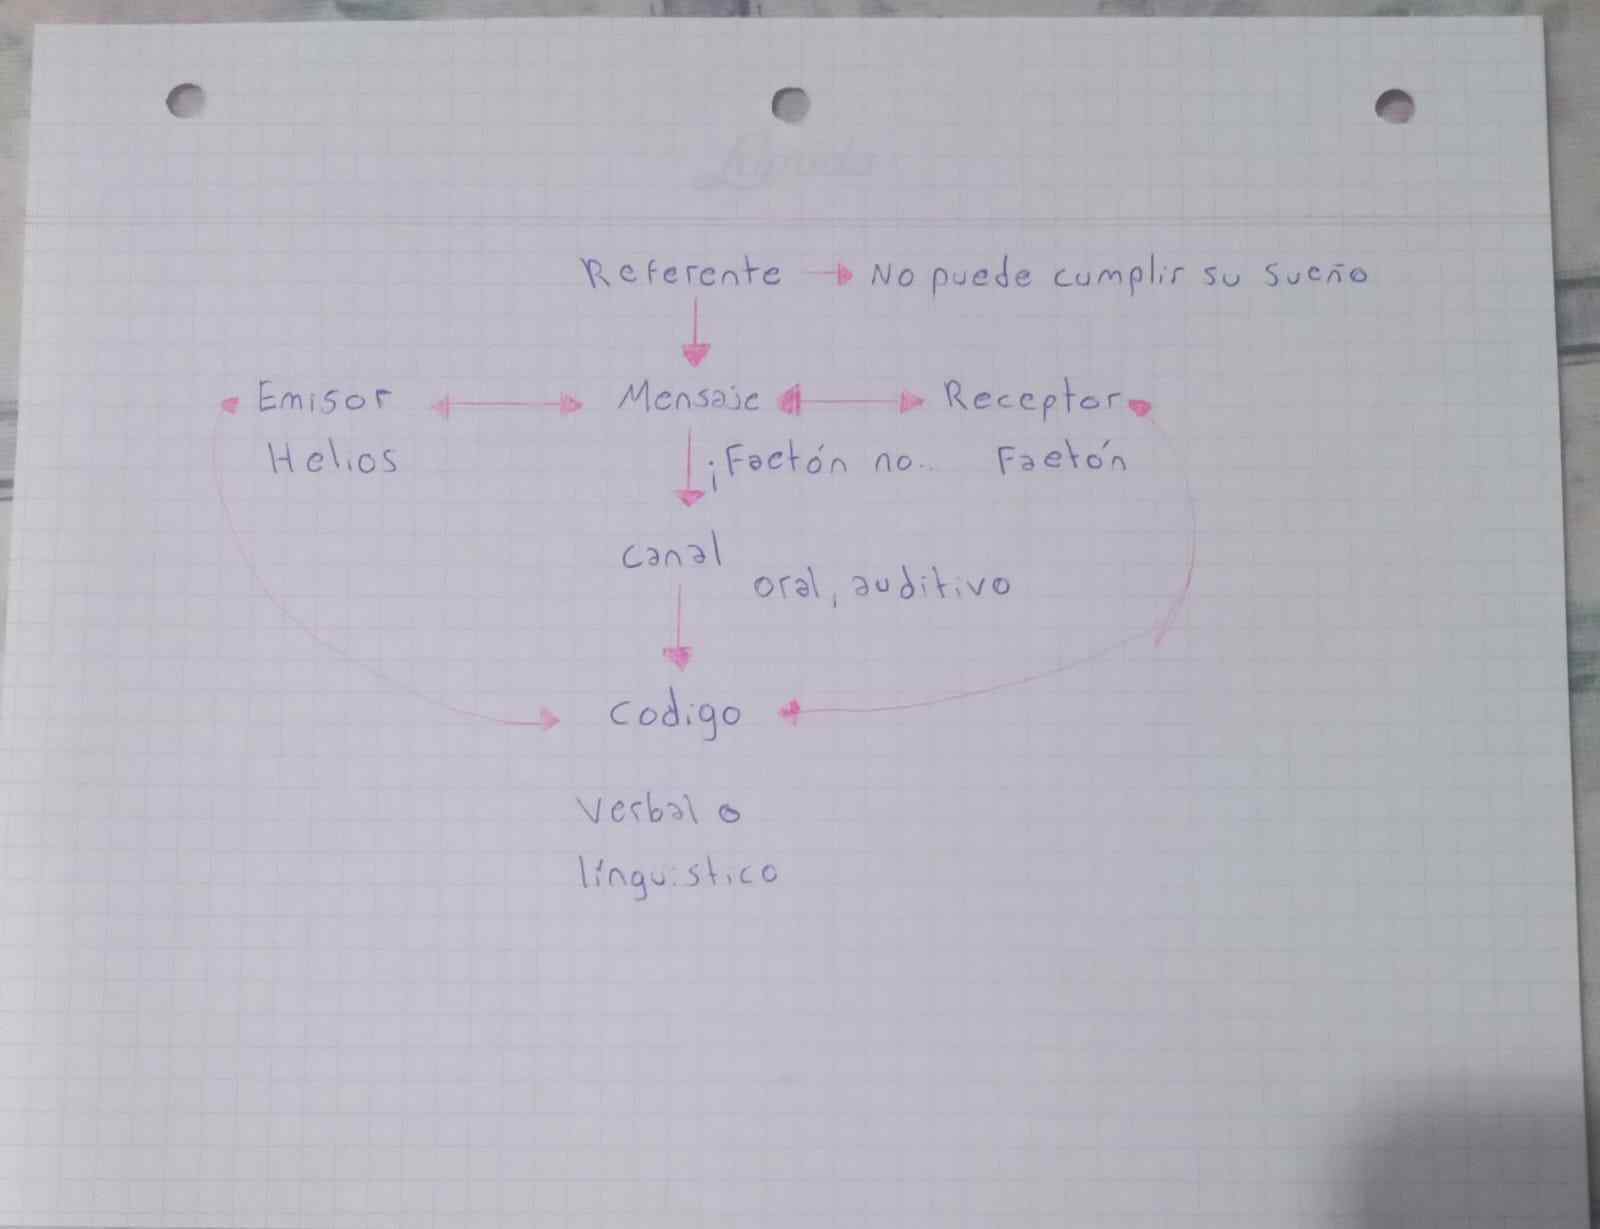 Referente → No puede cumplir su sueño
Emisor Mensaje Receptor
Helios ¡Faetón no.. Faetón
canal
oral, auditivo
codigo
verbal o
línguistico